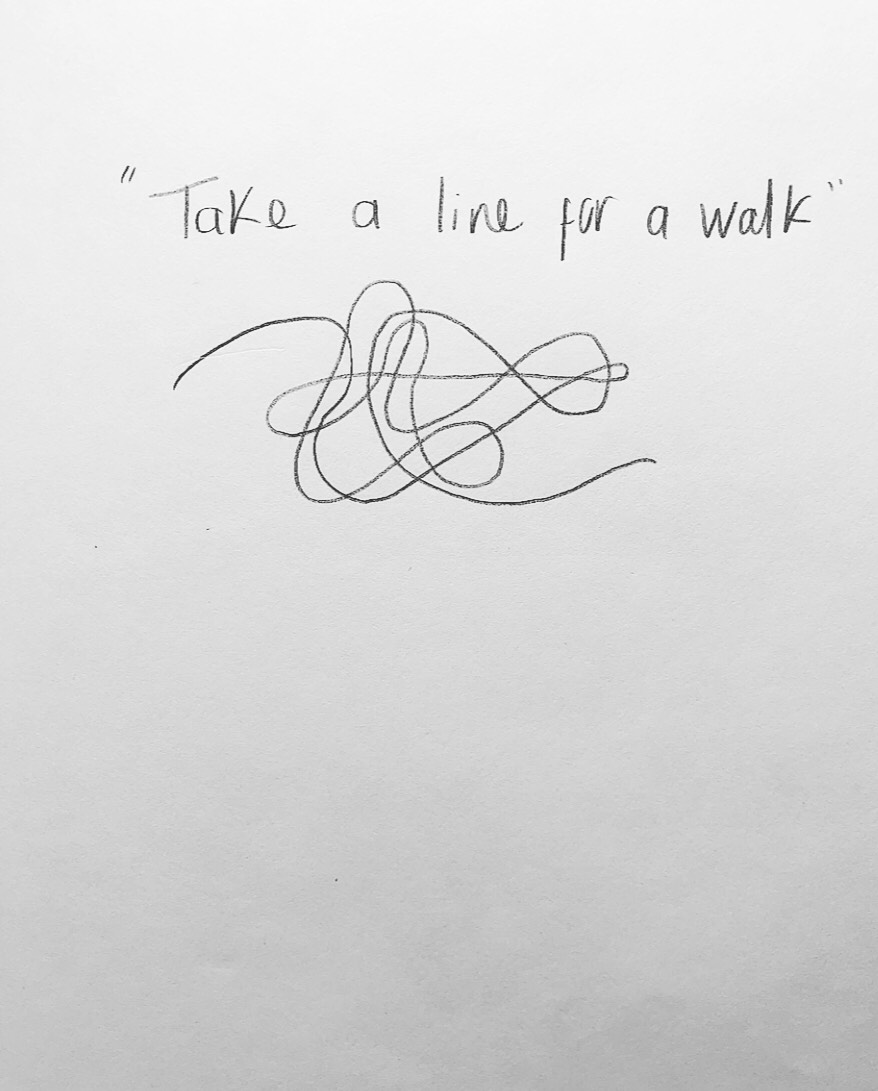 "Take a line for a walk"